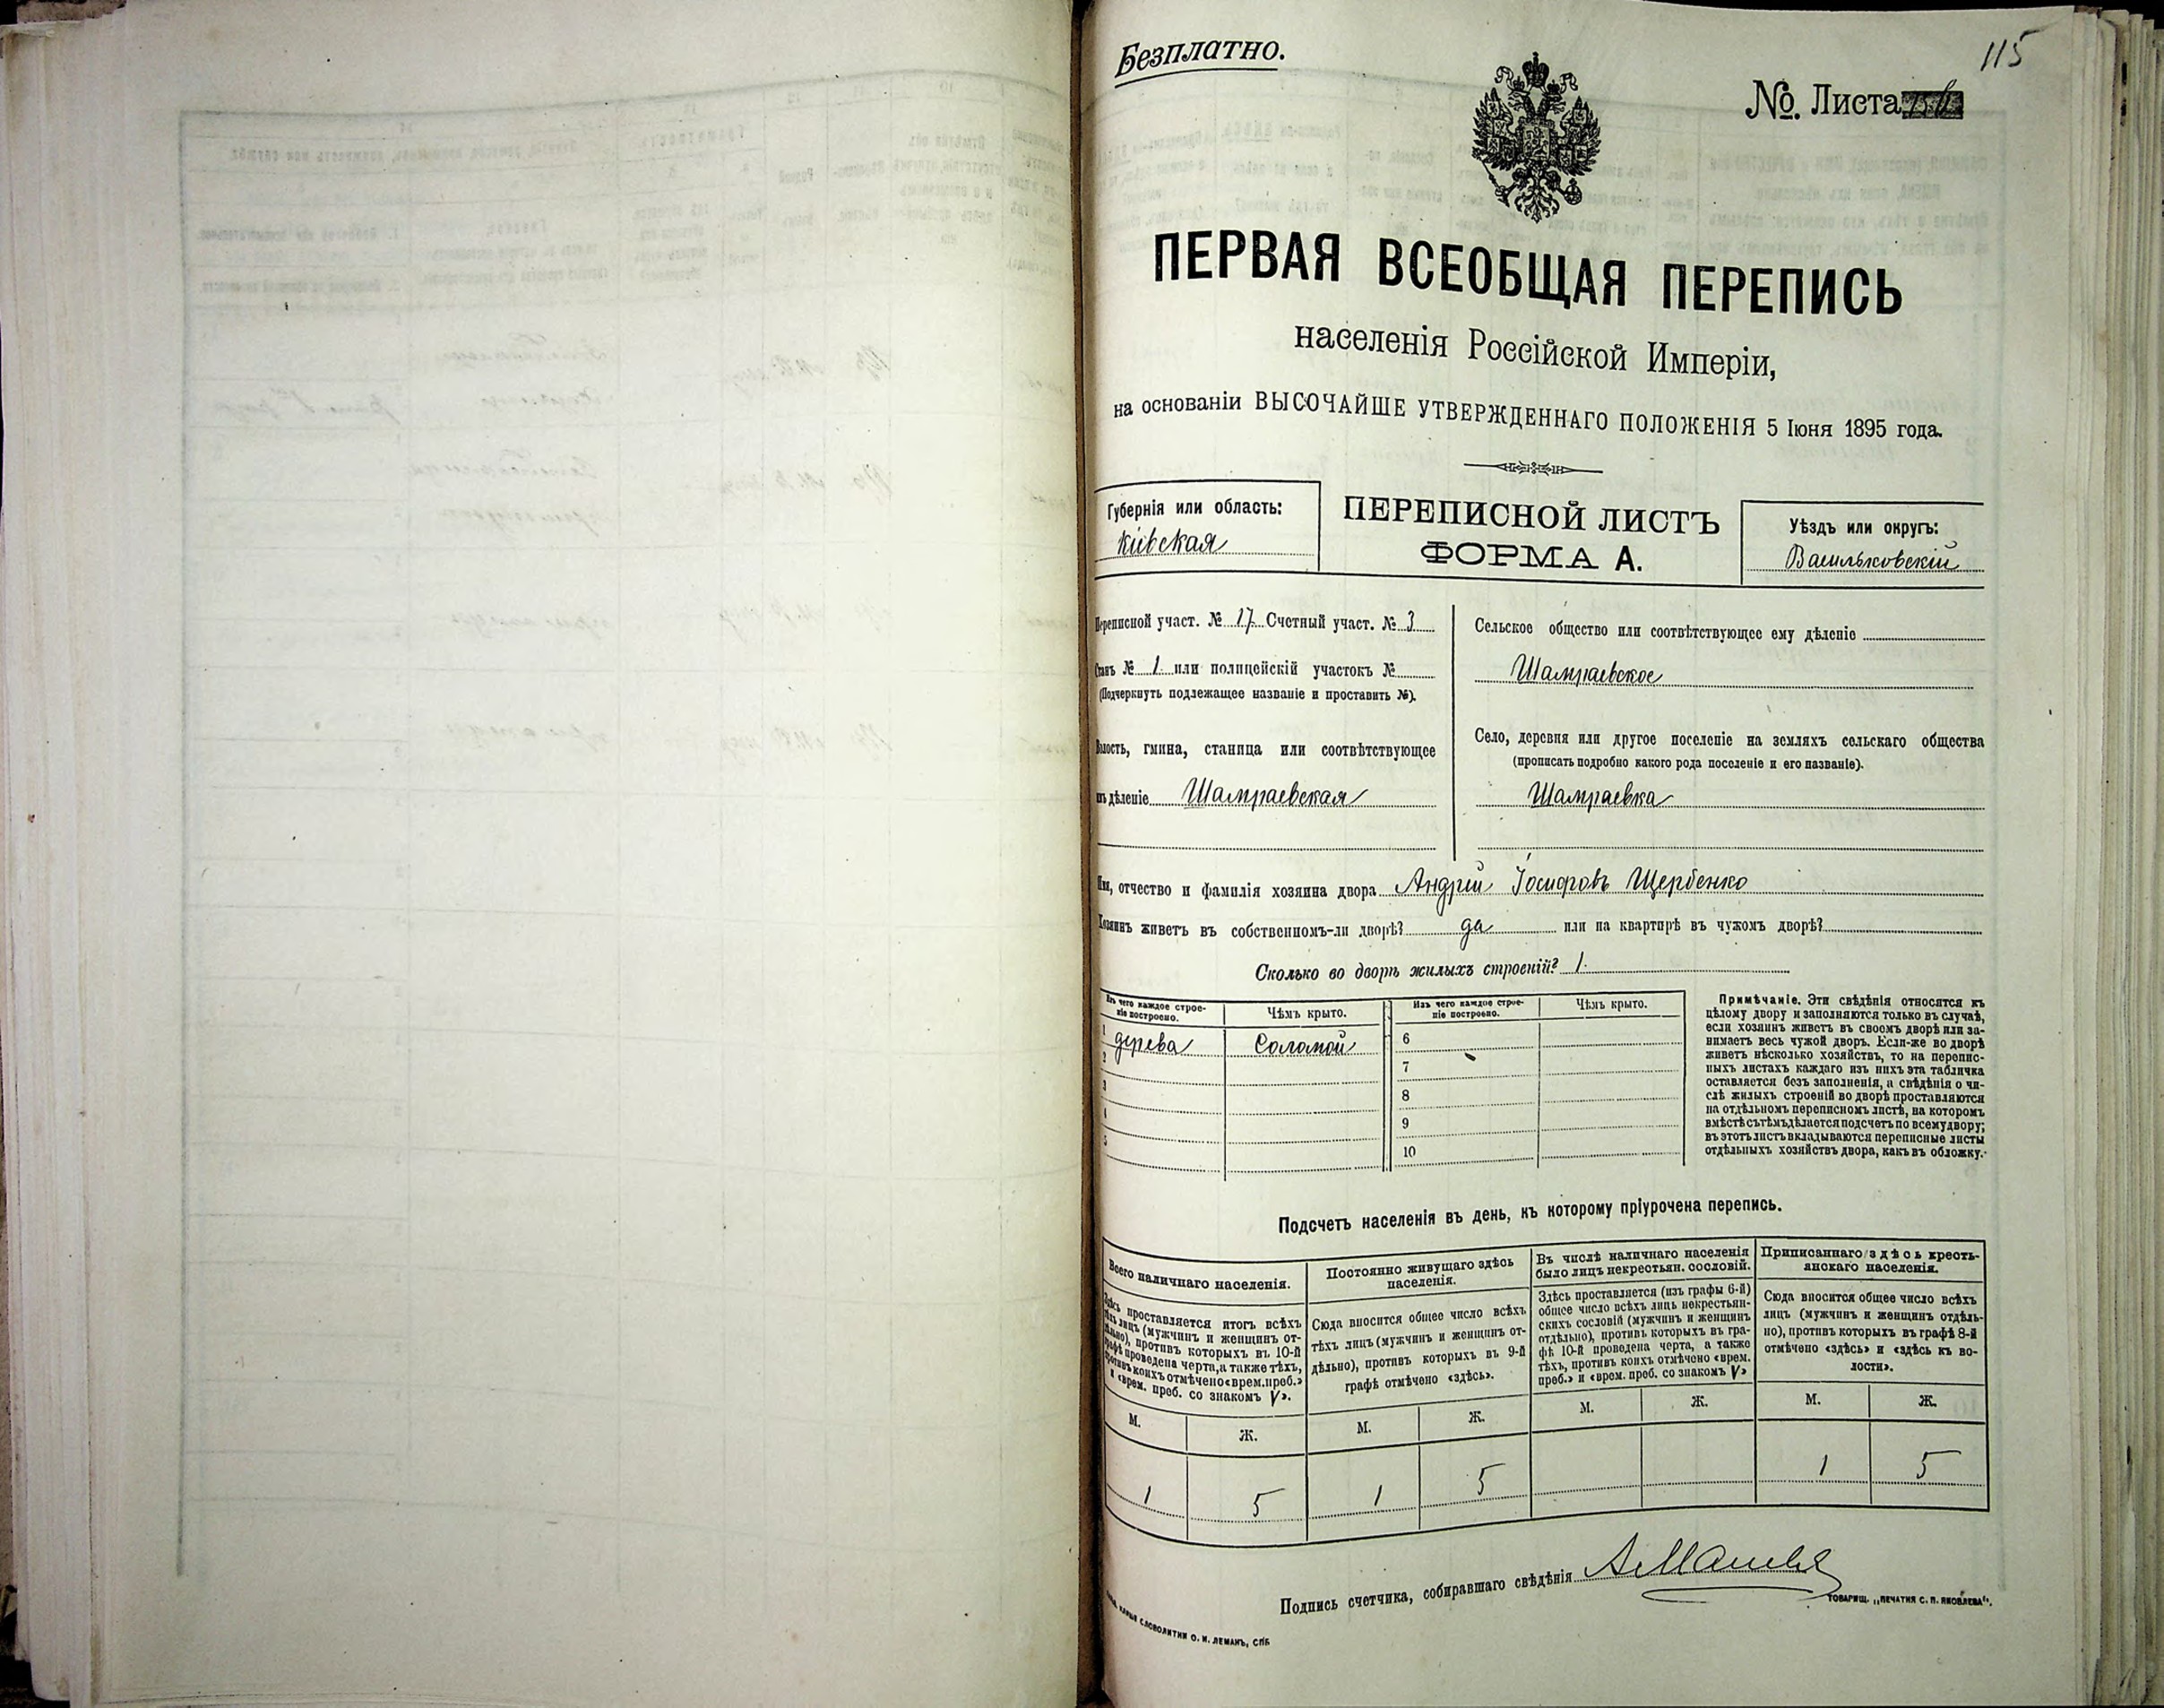 Безплатно.
115
№. Листа
ПЕРВАЯ ВСЕОБЩАЯ ПЕРЕПИСЬ
населенія Россійской Имперіи,
на основаніи ВЫСОЧАЙШЕ УТВЕРЖДЕННАГО ПОЛОЖЕНІЯ 5 Іюня 1895 года.
Губернія или область:
Кіевская
ПЕРЕПИСНОЙ ЛИСТЪ
ФОРМА А.
Уѣздъ или округъ:
Васильковскій
Переписной участ. № 17 Счетный участ. № 3
Станъ № 1 или полицейскій участокъ №
(Подчеркнуть подлежащее названіе и проставить №).
Волость, гмина, станица или соотвѣтствующее
имъ дѣленіе Шамраевская
Сельское общество или соотвѣтствующее ему дѣленіе
Шамраевское
Село, деревня или другое поселеніе на земляхъ сельскаго общества
(прописать подробно какого рода поселеніе и его названіе).
Шамраевка
Имя, отчество и фамилія хозяина двора Андрій Іосифовъ Щербенко
Хозяинъ живетъ въ собственномъ-ли дворѣ? да или на квартирѣ въ чужомъ дворѣ?
Сколько во дворѣ жилыхъ строеній? 1.
Изъ чего каждое строе-
ніе построено.
Чѣмъ крыто.
Изъ чего каждое строе-
ніе построено.
Чѣмъ крыто.
1 дерева Соломой 6
2 7
3 8
4 9
5 10
Примѣчаніе. Эти свѣдѣнія относятся къ
цѣлому двору и заполняются только въ случаѣ,
если хозяинъ живетъ въ своемъ дворѣ или за-
нимаетъ весь чужой дворъ. Если-же во дворѣ
живетъ нѣсколько хозяйствъ, то на перепис-
ныхъ листахъ каждаго изъ нихъ эта табличка
оставляется безъ заполненія, а свѣдѣнія о чи-
слѣ жилыхъ строеній во дворѣ проставляются
на отдѣльномъ переписномъ листѣ, на которомъ
вмѣстѣ съ тѣмъ дѣлается подсчетъ по всему двору;
въ этотъ листъ вкладываются переписные листы
отдѣльныхъ хозяйствъ двора, какъ въ обложку.
Подсчетъ населенія въ день, къ которому пріурочена перепись.
Всего наличнаго населенія.
Здѣсь проставляется итогъ всѣхъ
тѣхъ лицъ (мужчинъ и женщинъ от-
дѣльно), противъ которыхъ въ 10-й
графѣ проведена черта, а также тѣхъ,
противъ коихъ отмѣчено «врем. преб.»
и «врем. преб. со знакомъ V».
М. Ж.
1 5
Постоянно живущаго здѣсь
населенія.
Сюда вносится общее число всѣхъ
тѣхъ лицъ (мужчинъ и женщинъ от-
дѣльно), противъ которыхъ въ 9-й
графѣ отмѣчено «здѣсь».
М. Ж.
1 5
Въ числѣ наличнаго населенія
было лицъ некрестьян. сословій.
Здѣсь проставляется (изъ графы 6-й)
общее число всѣхъ лицъ некрестьян-
скихъ сословій (мужчинъ и женщинъ
отдѣльно), противъ которыхъ въ гра-
фѣ 10-й проведена черта, а также
тѣхъ, противъ коихъ отмѣчено «врем.
преб.» и «врем. преб. со знакомъ V»
М. Ж.
Приписаннаго здѣсь кресть-
янскаго населенія.
Сюда вносится общее число всѣхъ
лицъ (мужчинъ и женщинъ отдѣль-
но), противъ которыхъ въ графѣ 8-й
отмѣчено «здѣсь» и «здѣсь къ во-
лости».
М. Ж.
1 5
Подпись счетчика, собиравшаго свѣдѣнія
СЛОВОЛИТНИ О. И. ЛЕМАНЪ, СПБ
ТОВАРИЩ. „ПЕЧАТНЯ С. П. ЯКОВЛЕВА".